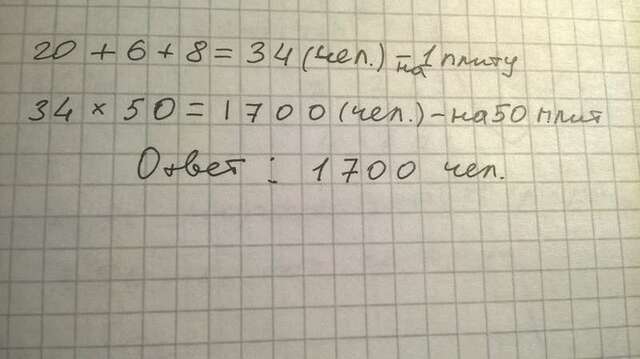 20 + 6 + 8 = 34 (чел.) - на 1 плиту
34 × 50 = 1700 (чел.) - на 50 плит
Ответ : 1700 чел.